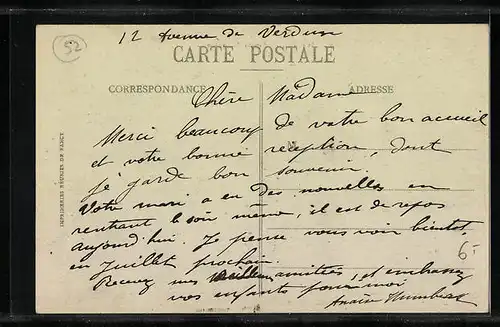 12 Avenue de Verdun
52
CARTE POSTALE
CORRESPONDANCE
ADRESSE
Chère Madame
Merci beaucoup de votre bon accueil
et votre bonne réception, dont
je garde bon souvenir,
Votre mari a eu des nouvelles en
rentrant le soir même, il est de repos
aujourd'hui. Je pense vous voir bientôt
en Juillet prochain.
Recevez mes meilleures amitiés, et embrassez
vos enfants pour moi
6-
IMPRIMERIES RÉUNIES DE NANCY